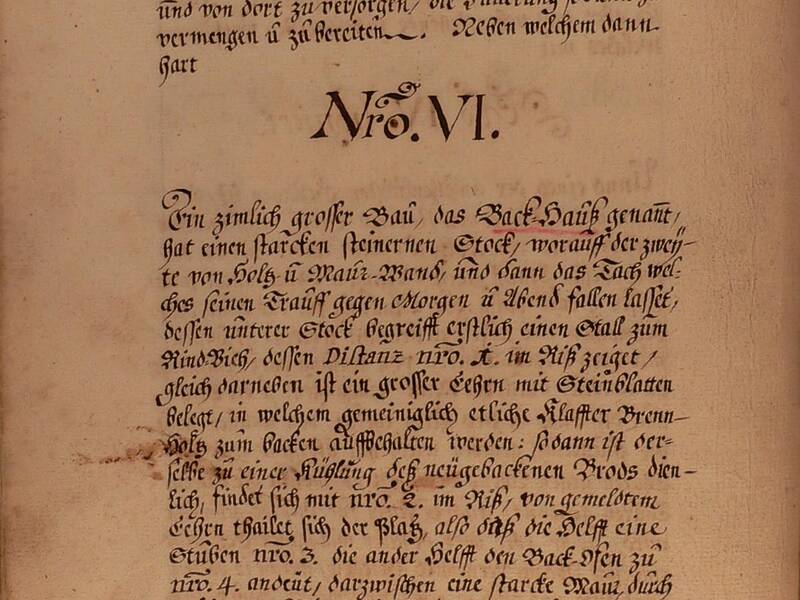 und von dort zu versorgen, die
vermengen ū zu bereiten. Neben welchem dann
hart
Nrō. VI.
Ein zimlich grosser Baū, das Back-Haūß genant,
hat einen starcken steinernen Stock, worauff der zweÿ-
te von Holtz ū Maūr-Wand, und dann das Tach wel-
ches seinen Trauff gegen Morgen ū Abend fallen lasset,
dessen ūnterer Stock begreifft erstlich einen Stall zum
Rind Vieh, dessen Distanz nrō. 1. im Riß zeiget,
gleich darneben ist ein grosser Eehrn mit Steinblatten
belegt, in welchem gemeiniglich etliche Klaffter Brenn-
Holtz zum backen auffbehalten werden: so dann ist der-
selbe zū einer Kühlung deß neügebackenen Brods dien-
lich, findet sich mit nrō. 2. im Riß, von gemeldtem
Eehrn thailet sich der Platz, also daß die Helfft eine
Stūben nrō. 3. die ander Helfft den Back-Ofen zū
nrō. 4. andeüt, darzwischen eine starcke Maūr durch